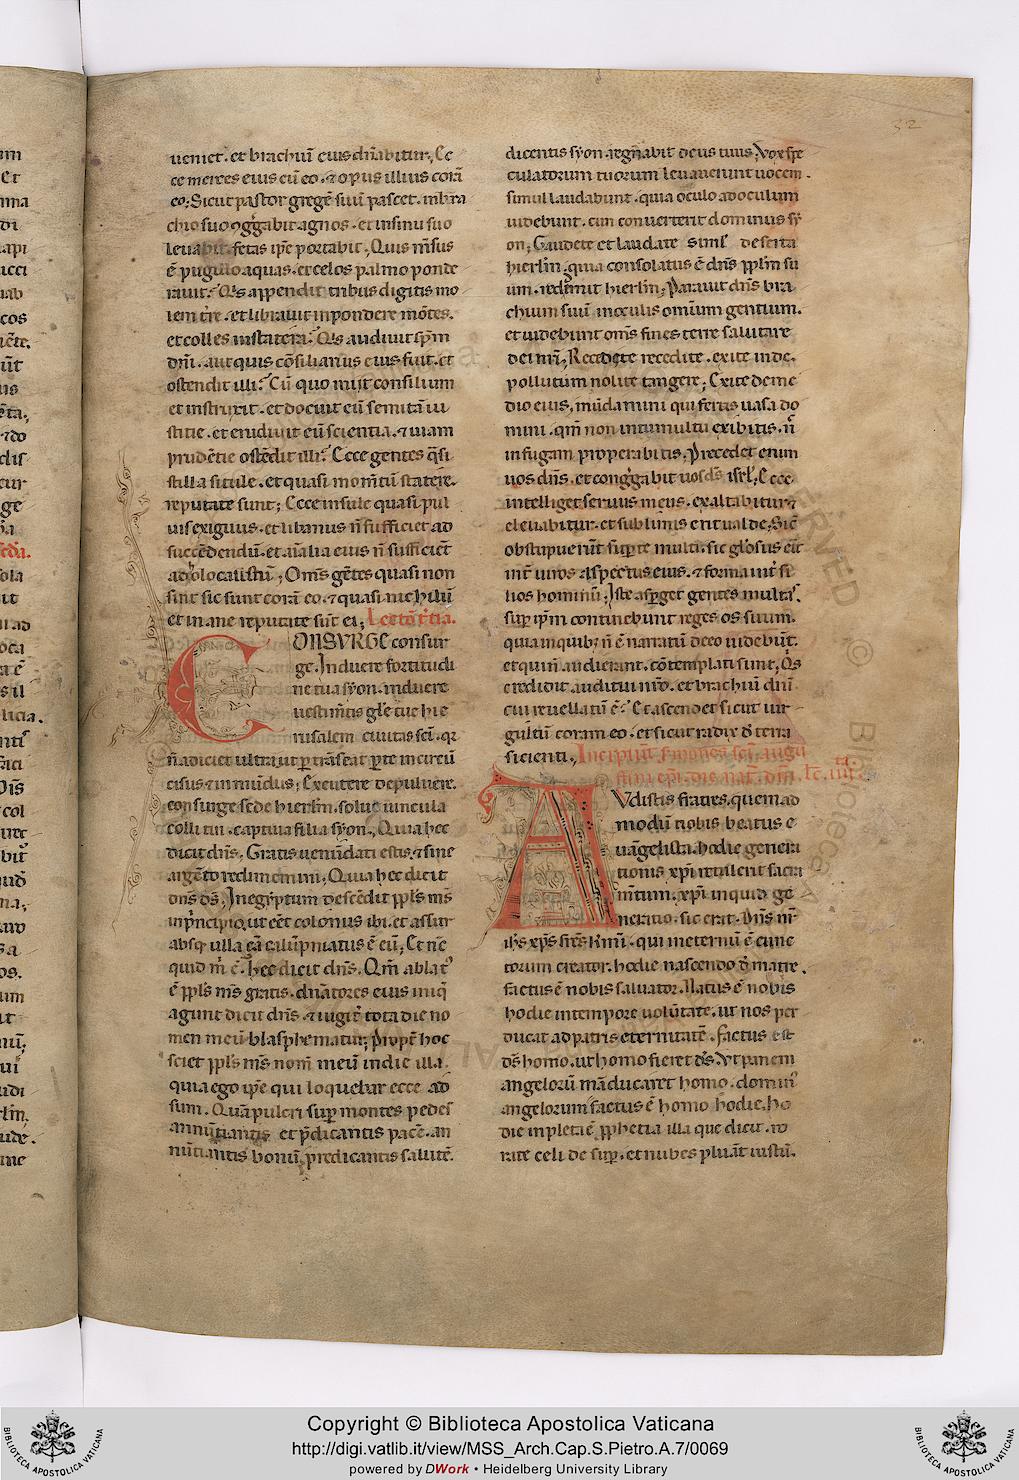 32
ueniet. et brachiū eius dn̄abitur; Ec
ce merces eius cū eo. ⁊ opus illius corā
eo; Sicut pastor gregē suū pascet. in bra
chio suo ꝯg̃gabit agnos. et in sinu suo
leuabit. fetas ip̄e portabit; Quis m̄sus
ē pugillo aquas. et celos palmo ponde
rauit? Q̄s appendit tribus digitis mo
lem t̄re. et librauit in pondere mōtes.
et colles in statera? Q̄s audiuit sp̄m
dn̄i. aut quis cōsiliarius eius fuit. et
ostendit illi? Cū quo iniit consilium
et instruxit. et docuit eū semitā iu
stitie. et erudiuit eū scientia. ⁊ uiam
prudētie ostēdit illi? Ecce gentes q̄si
stilla situle. et quasi mom̄tū statere.
reputate sunt; Ecce insule quasi pul
uis exiguus. et libanus n̄ sufficiet ad
succēdendū. et aīalia eius n̄ sufficiēt
ad olocaustū; Om̄s gētes quasi non
sint sic sunt corā eo. ⁊ quasi nichilū
et inane reputate sūt ei; Lectō t̄tia.
CONSVRGE consur
ge. Induere fortitudi
ne tua syon. induere
uestim̄tis gl̄e tue hie
rusalem ciuitas sc̄i. q̄
n̄ adiciet ultra. ut p̄trāseat p̄ te incircū
cisus ⁊ inmūdus; Excutere de puluere.
consurge sede hierl̄m. solue uincula
colli tui. captiua filia syon; Quia hec
dicit dn̄s. Gratis uenūdati estis. ⁊ sine
argēto redimemini; Quia hec dicit
dn̄s ds̄. In egyptum descēdit ppl̄s m̄s
in p̄ncipio. ut eēt colonus ibi. et assur
absq̄ ulla cā calūpniatus ē eū; Et nc̄
quid m̄ ē. hec dicit dn̄s. Qm̄ ablat⁹
ē ppl̄s m̄s gratis. dn̄atores eius iniq̄
agunt dicit dn̄s. ⁊ iugit̄ tota die no
men meū blasphematur; Propt̄ hoc
sciet ppl̄s m̄s nom̄ meū in die illa.
quia ego ip̄e qui loquebar ecce ad
sum. Quā pulcri sup̄ montes pedes
annūtiantis et p̄dicantis pacē. an
nūtiantis bonū. predicantis salutē.
dicentis syon. regnabit deus tuus; Vox spe
culatorum tuorum leuauerunt uocem.
simul laudabunt. quia oculo ad oculum
uidebunt. cum conuerterit dominus sy
on; Gaudete et laudate simł deserta
hierl̄m. quia consolatus ē dn̄s ppl̄m su
um. redemit hierl̄m; Parauit dn̄s bra
chium suū in oculis omīum gentium.
et uidebunt om̄s fines terre salutare
dei nr̄i; Recedite recedite. exite inde.
pollutum nolite tangere; Exite de me
dio eius, mūdamini qui fertis uasa do
mini. qm̄ non in tumultu exibitis. n̄
in fugam properabitis; Precedet enim
uos dn̄s. et cong̃gabit uos ds̄ isrł; Ecce
intelliget seruus meus. exaltabitur ⁊
eleuabitur. et sublimis erit ualde; Sic̄
obstupuerūt sup̄ te multi. sic gl̄osus eīt
int̄ uiros aspectus eius. ⁊ forma int̄ fi
lios hominū; Iste asp̄get gentes multas.
sup̄ ip̄m continebunt reges os suum.
quia in quib; n̄ ē narratū de eo uidebūt.
et qui n̄ audierunt. cōtemplati sunt; Q̄s
credidit auditui nr̄o. et brachiū dn̄i
cui reuellatū ē? Et ascendet sicut uir
gultū coram eo. et sicut radix d̄ terra
sicienti. Incipiūt s̄mones sc̄i augu
stini ep̄i. die nat̄. dn̄i. Lc̄. iiij.ta
AVdistis fratres. quemad
modū nobis beatus e
uāgelista. hodie genera
tionis xp̄i retulerit sacra
m̄tum. xp̄i inquid ge
neratio. sic erat. Dn̄s nr̄
ih̄s xp̄s frēs kmī. qui in eternū ē cunc
torum creator. hodie nascendo d̄ matre.
factus ē nobis saluator. Natus ē nobis
hodie in tempore uolūtate. ut nos per
ducat ad patris eternitatē. factus est
ds̄ homo. ut homo fieret ds̄. Vt panem
angelorū māducaret homo. domin⁹
angelorum factus ē homo hodie. ho
die inpleta ē pphetia illa que dicit. ro
rate celi de sup̄. et nubes pluāt iustū.
Copyright © Biblioteca Apostolica Vaticana
http://digi.vatlib.it/view/MSS_Arch.Cap.S.Pietro.A.7/0069
powered by DWork • Heidelberg University Library
BIBLIOTECA APOSTOLICA VATICANA
BIBLIOTECA APOSTOLICA VATICANA